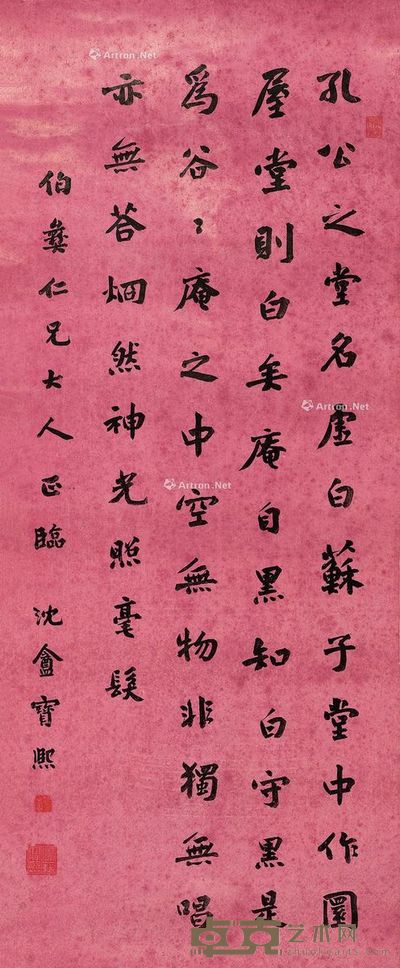 孔公之堂名虛白蘇子堂中作圜
屋堂則白矣庵自黑知白守黑是
爲谷〻庵之中空無物非獨無唱
亦無荅烱然神光照毫髮
伯彝仁兄大人正臨 沈盦寶熙
Artron.Net
Artron.Net
Artron.Net
卓克艺术网